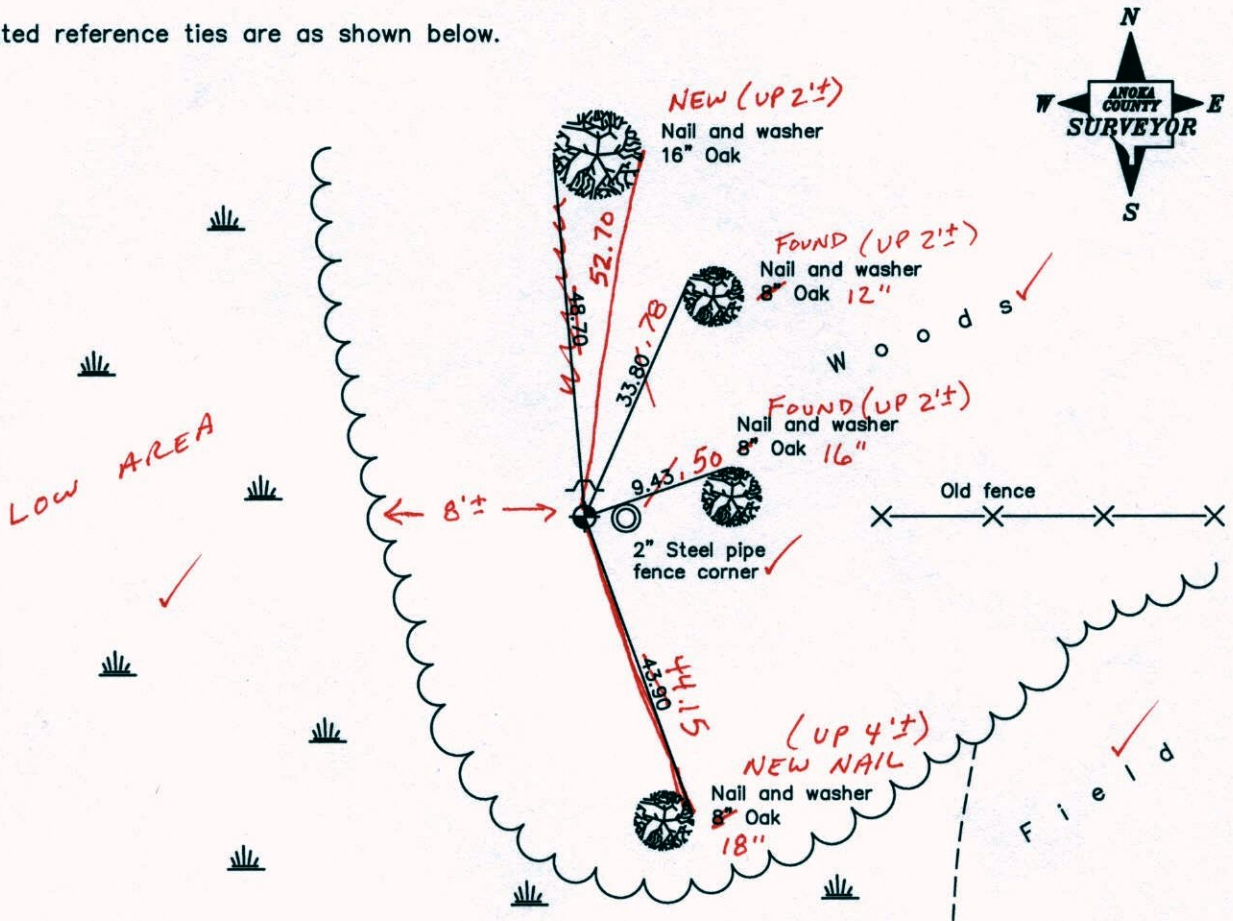 ted reference ties are as shown below.
N
W
ANOKA
COUNTY
E
SURVEYOR
S
NEW (UP 2'±)
Nail and washer
16" Oak
52.70
48.70
FOUND (UP 2'±)
Nail and washer
8" Oak 12"
33.80 .78
Woods
FOUND (UP 2'±)
Nail and washer
8" Oak 16"
9.43 .50
LOW AREA
8'±
Old fence
2" Steel pipe
fence corner
43.90
44.15
(UP 4'±)
NEW NAIL
Nail and washer
8" Oak
18"
Field